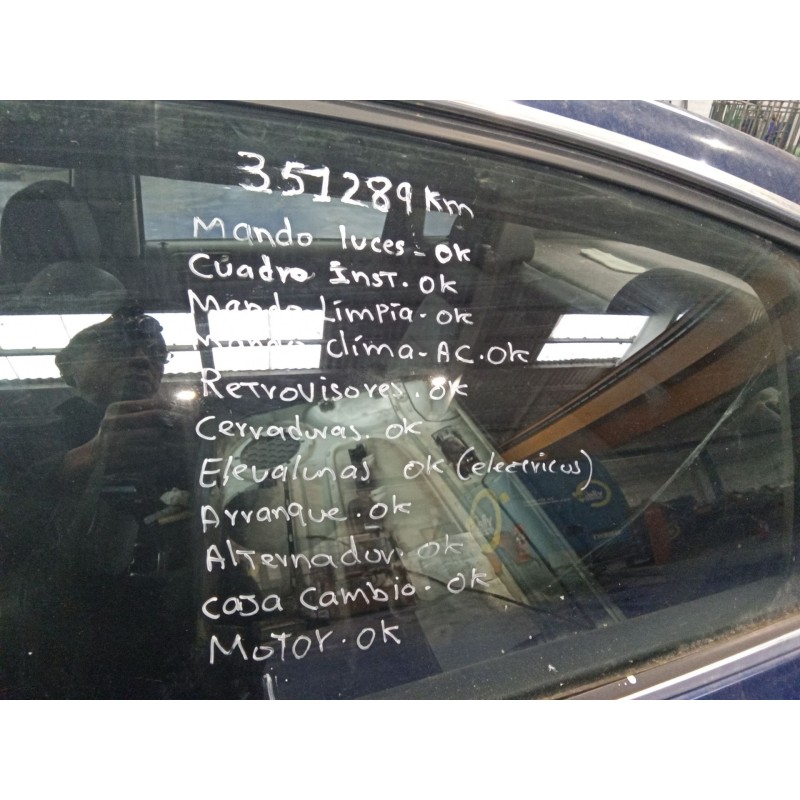 351289 Km
Mando luces - OK
Cuadro Inst. OK
Mando Limpia - OK
Mando clima - AC. OK
Retrovisores. OK
Cerraduras. OK
Elevalunas OK (electricos)
Arranque. OK
Alternador. OK
Caja Cambio. OK
Motor. OK